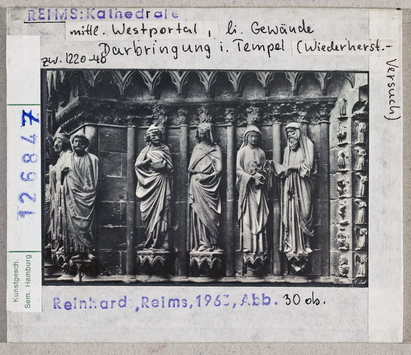 REIMS: Kathedrale
mittl. Westportal, li. Gewände
Darbringung i. Tempel (Wiederherst.-
Versuch)
zw. 1220-40
126847
Kunstgesch.
Sem. Hamburg
Reinhard, Reims, 1963, Abb. 30 ob.